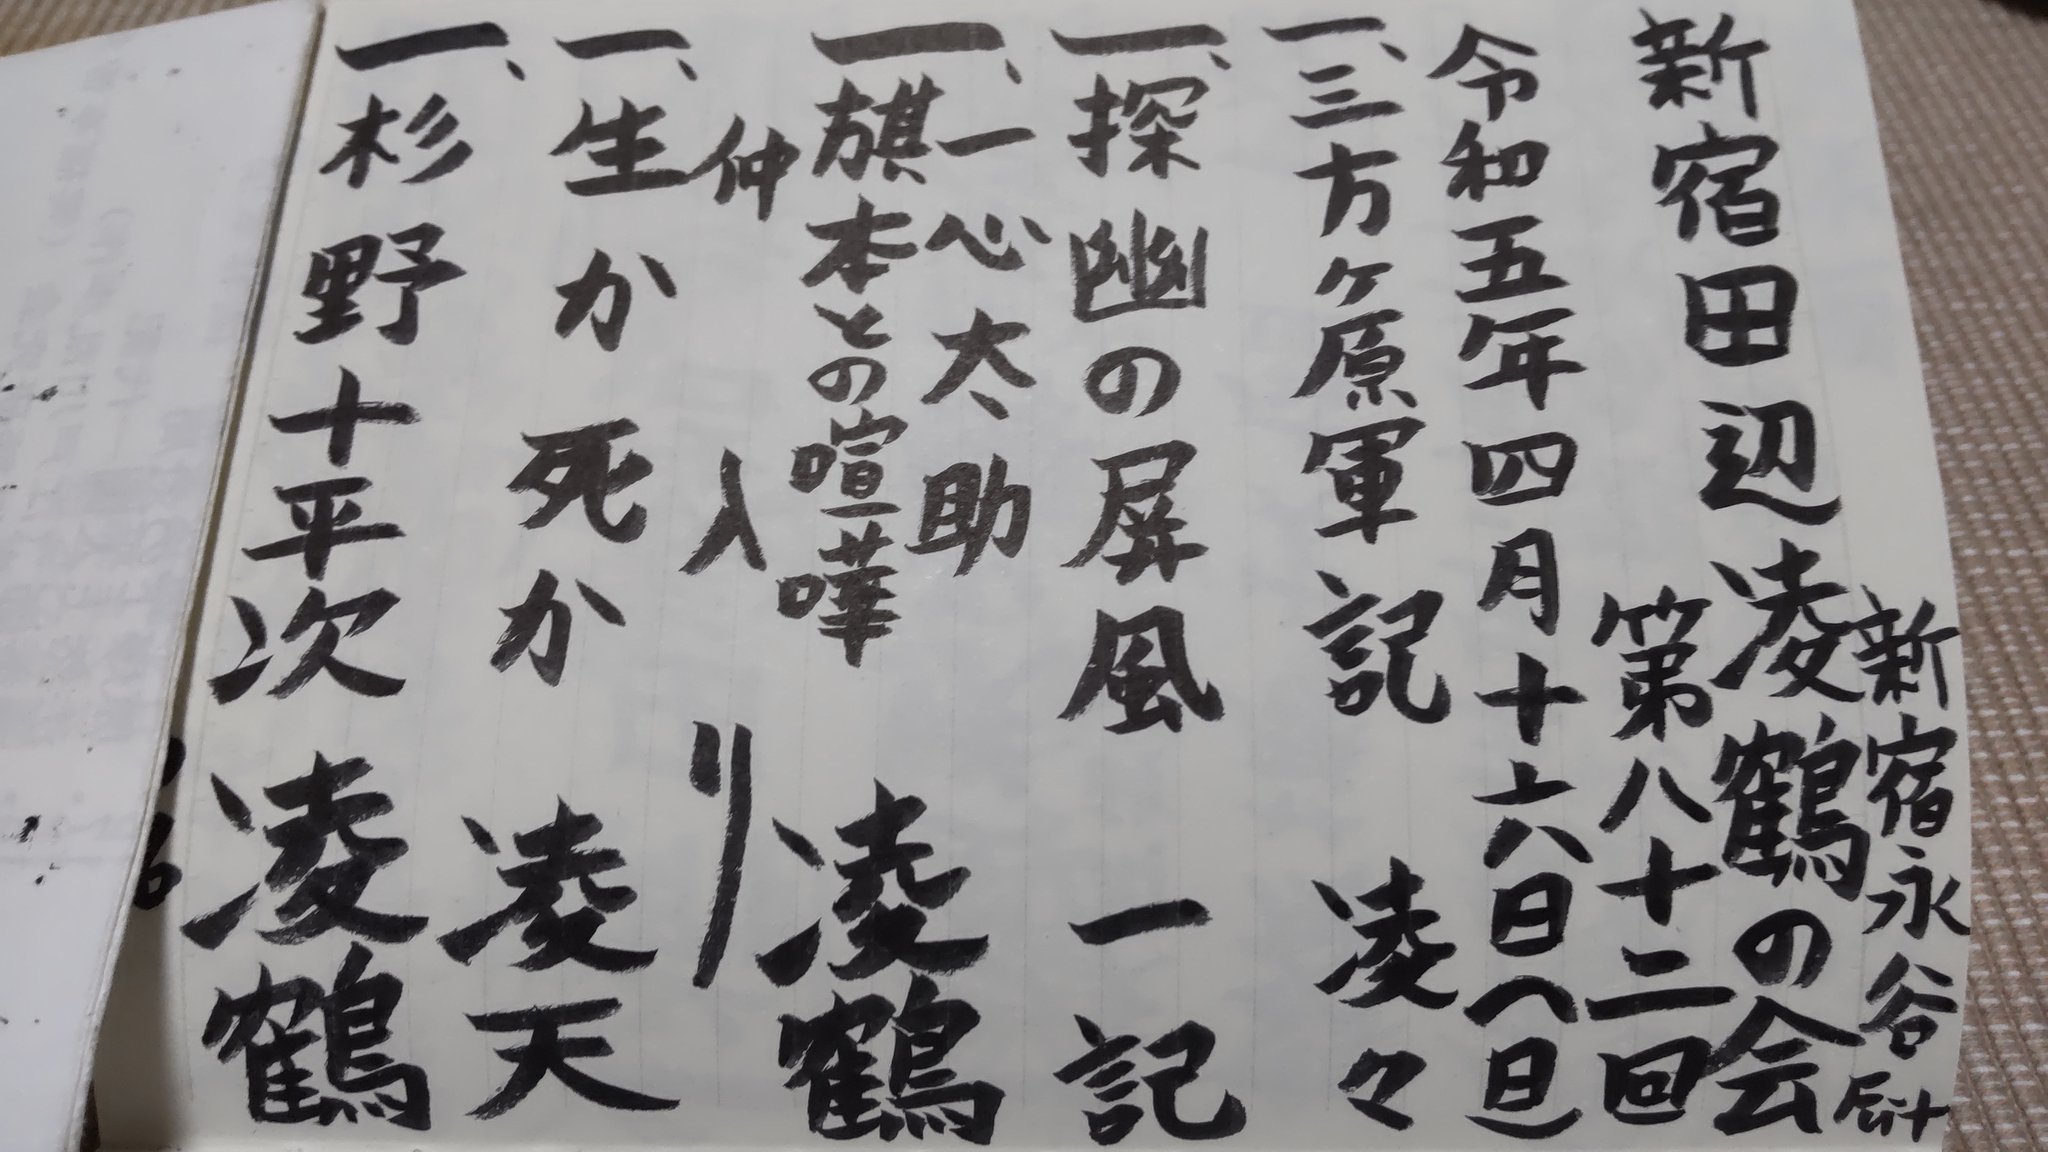 新宿永谷
新宿田辺凌鶴の会
第八十二回
令和五年四月十六日(日)
一、三方ヶ原軍記 凌々
一、探幽の屏風 一記
一、一心太助
旗本との喧嘩 凌鶴
仲入り
一、生か死か 凌天
一、杉野十平次 凌鶴